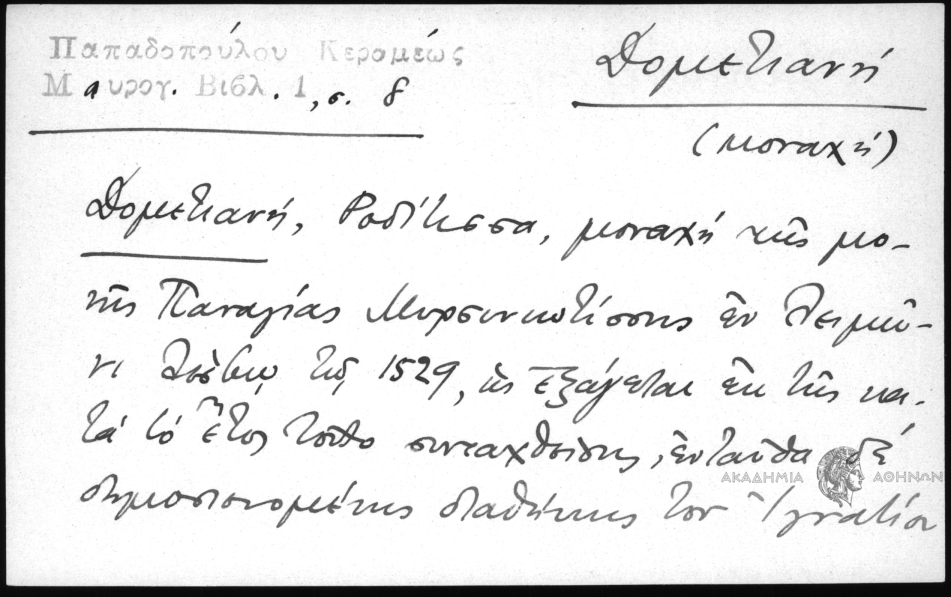 Παπαδοπούλου Κεραμέως
Μαυρογ. Βιβλ. 1, σ. 8
Δομετιανή
(μοναχή)
Δομετιανή, Ροδίτισσα, μοναχή τῆς μο-
νῆς Παναγίας Μυρσινιωτίσσης ἐν Λειμῶ-
νι Λέσβῳ τῷ 1529, ὡς ἐξάγεται ἐκ τῆς κα-
τά τό ἔτος τοῦτο συνταχθείσης, ἐνταῦθα δέ
δημοσιευομένης διαθήκης τοῦ Ἰγνατίου
ΑΚΑΔΗΜΙΑ ΑΘΗΝΩΝ